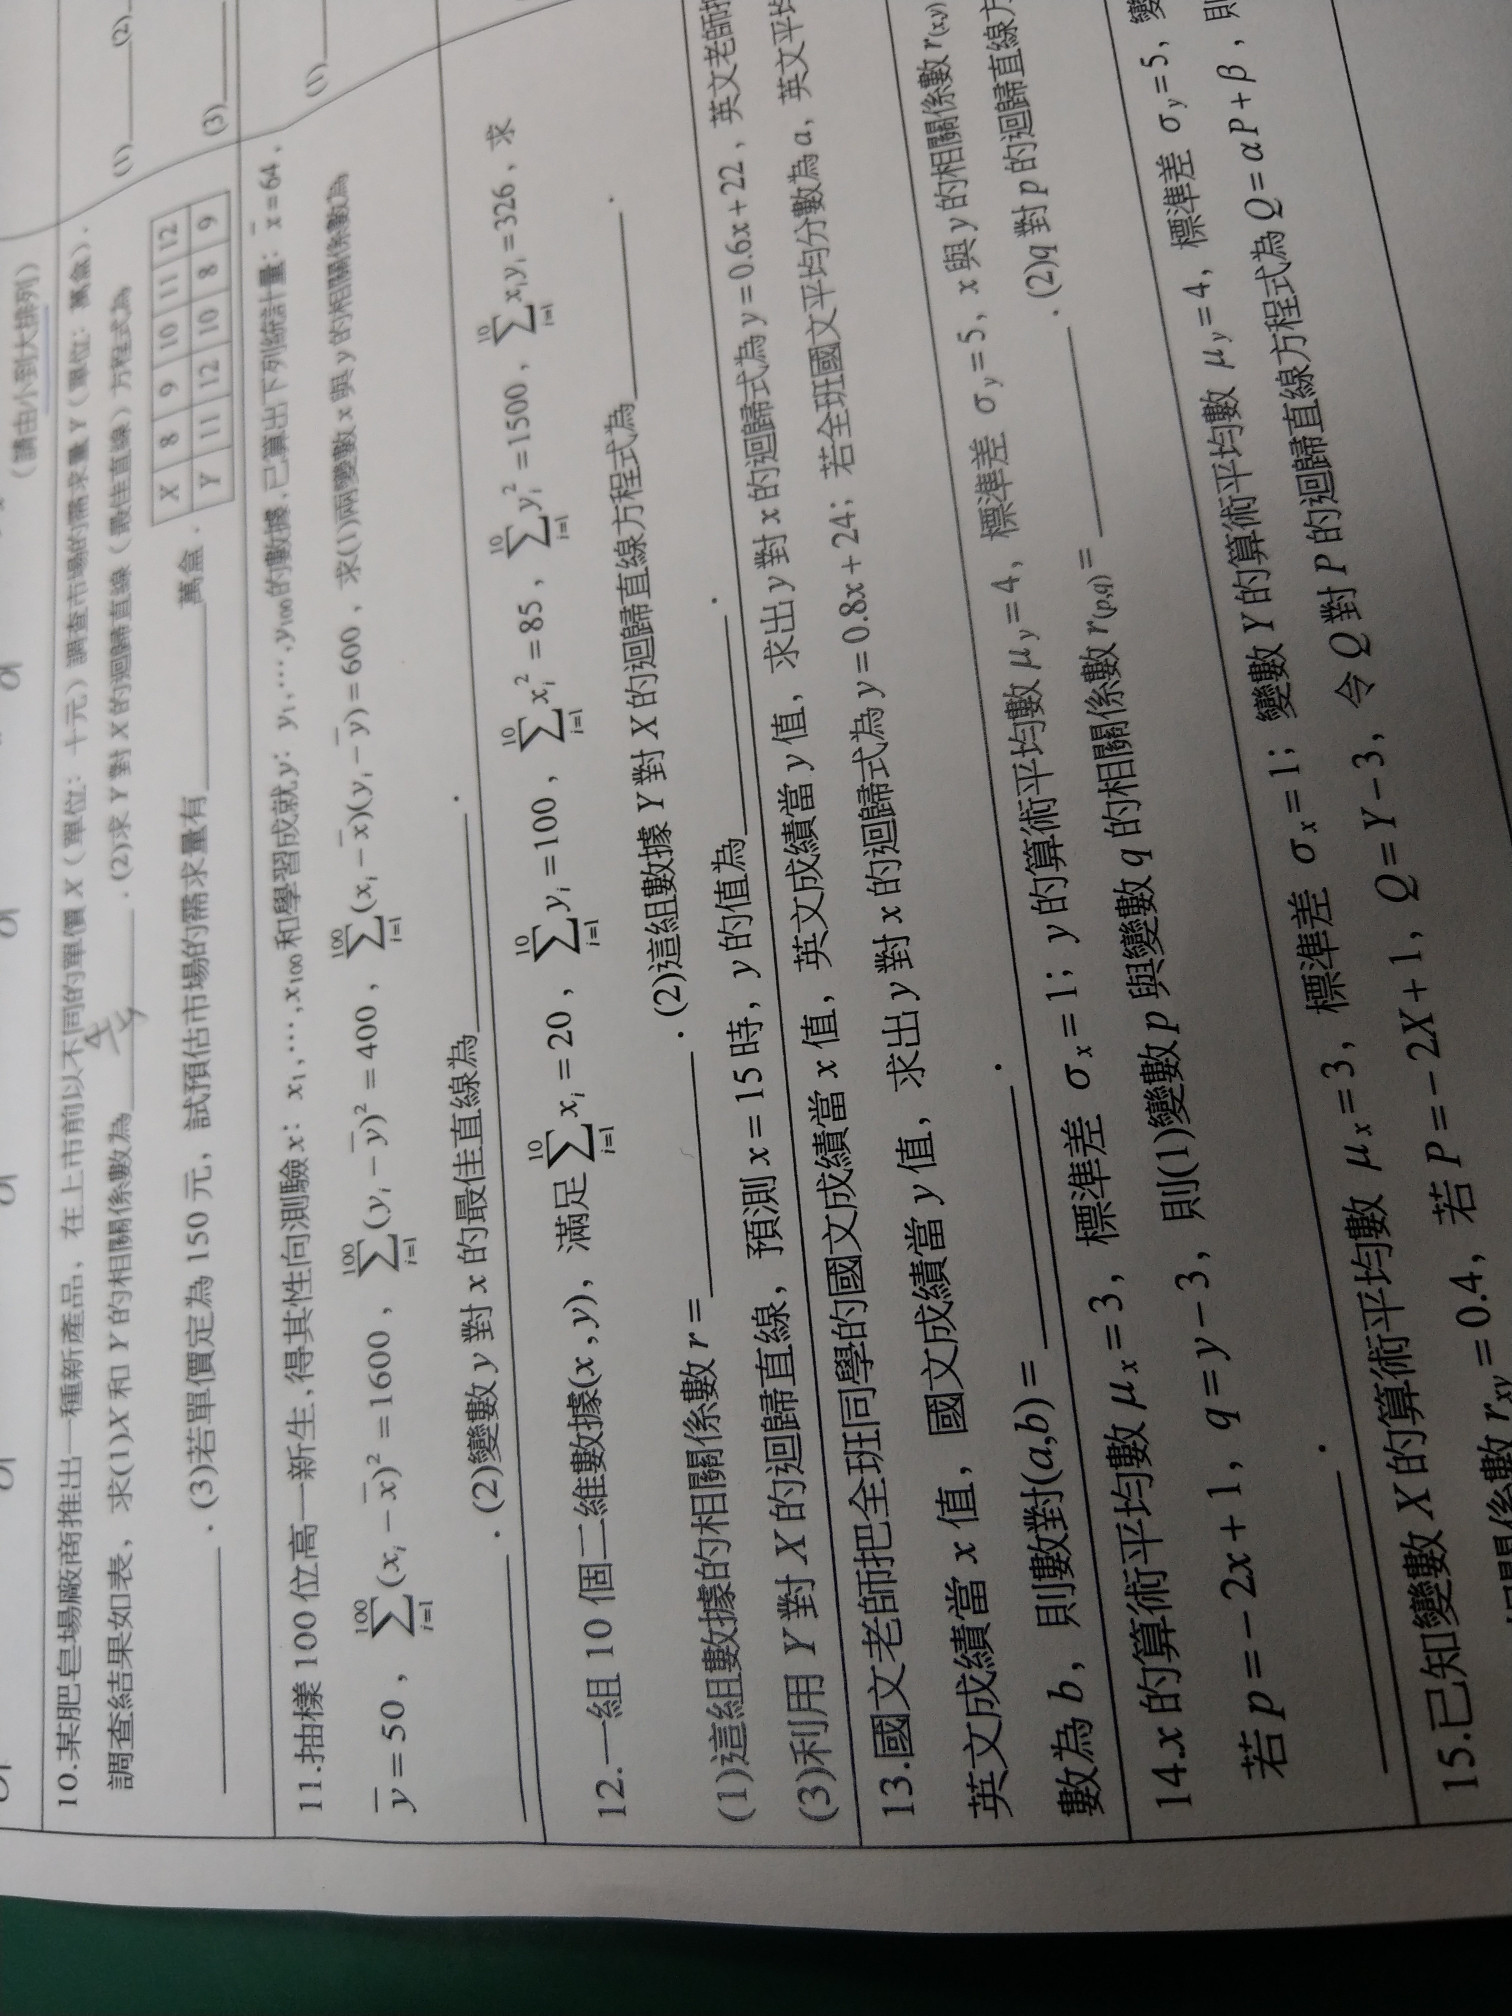 (請由小到大排列)
10.某肥皂場廠商推出一種新產品，在上市前以不同的單價X（單位：十元）調查市場的需求量Y（單位：萬盒）.
調查結果如表，求(1)X和Y的相關係數為________.(2)求Y對X的迴歸直線（最佳直線）方程式為
________.(3)若單價定為150元，試預估市場的需求量有________萬盒.
X 8 9 10 11 12
Y 11 12 10 8 9
(1)____(2)
(3)____
11.抽樣100位高一新生,得其性向測驗x：x₁,⋯,x₁₀₀和學習成就y：y₁,⋯,y₁₀₀的數據,已算出下列統計量：x̄=64，
ȳ=50，∑_{i=1}^{100}(xᵢ-x̄)²=1600，∑_{i=1}^{100}(yᵢ-ȳ)²=400，∑_{i=1}^{100}(xᵢ-x̄)(yᵢ-ȳ)=600，求(1)兩變數x與y的相關係數為
________.(2)變數y對x的最佳直線為________.
(1)____
12.一組10個二維數據(x,y)，滿足∑_{i=1}^{10}xᵢ=20，∑_{i=1}^{10}yᵢ=100，∑_{i=1}^{10}xᵢ²=85，∑_{i=1}^{10}yᵢ²=1500，∑_{i=1}^{10}xᵢyᵢ=326，求
(1)這組數據的相關係數r=________.(2)這組數據Y對X的迴歸直線方程式為________.
(3)利用Y對X的迴歸直線，預測x=15時，y的值為________.
13.國文老師把全班同學的國文成績當x值，英文成績當y值，求出y對x的迴歸式為y=0.6x+22，英文老師
英文成績當x值，國文成績當y值，求出y對x的迴歸式為y=0.8x+24；若全班國文平均分數為a，英文平
數為b，則數對(a,b)=________.
14.x的算術平均數μₓ=3，標準差σₓ=1；y的算術平均數μ_y=4，標準差σ_y=5，x與y的相關係數r(x,y)
若p=-2x+1，q=y-3，則(1)變數p與變數q的相關係數r(p,q)=________.(2)q對p的迴歸直線方
________.
15.已知變數X的算術平均數μₓ=3，標準差σₓ=1；變數Y的算術平均數μ_y=4，標準差σ_y=5，
關係數r_{xy}=0.4，若P=-2X+1，Q=Y-3，令Q對P的迴歸直線方程式為Q=αP+β，則